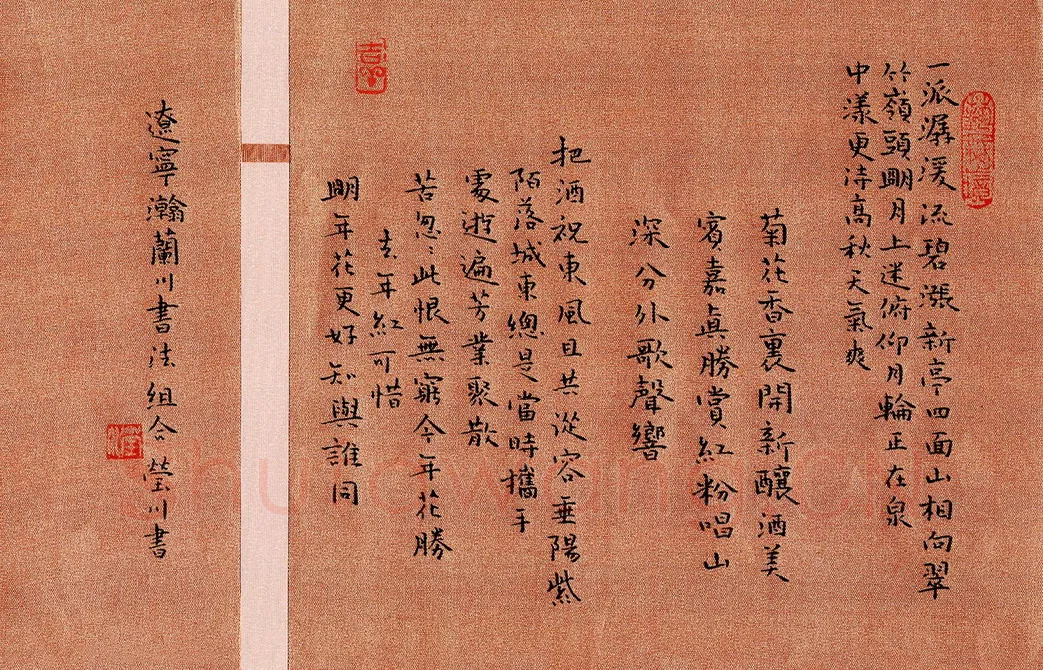 一派潺湲流碧漲新亭四面山相向翠
竹嶺頭朙月上迷俯仰月輪正在泉
中漾更待高秋天氣爽
菊花香裏開新釀酒美
賓嘉真勝賞紅粉唱山
深分外歌聲響
把酒祝東風且共從容垂陽紫
陌落城東總是當時攜手
處遊遍芳業聚散
苦忽〻此恨無窮今年花勝
去年紅可惜
朙年花更好知與誰同
遼寧瀚蘭川書法組合瑩川書